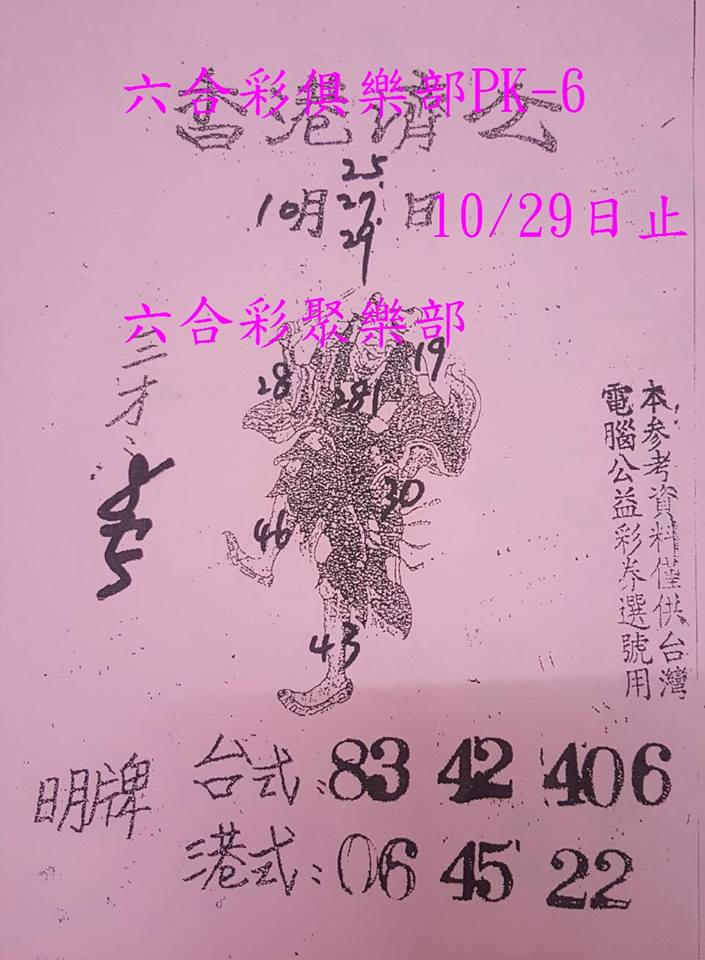 六合彩俱樂部PK-6
香港濟公
25
10月 27 日
29
10/29日止
六合彩聚樂部
三才:
28
281
19
30
46
43
本參考資料僅供台灣
電腦公益彩券選號用
明牌
台式:83 42 406
港式:06 45 22